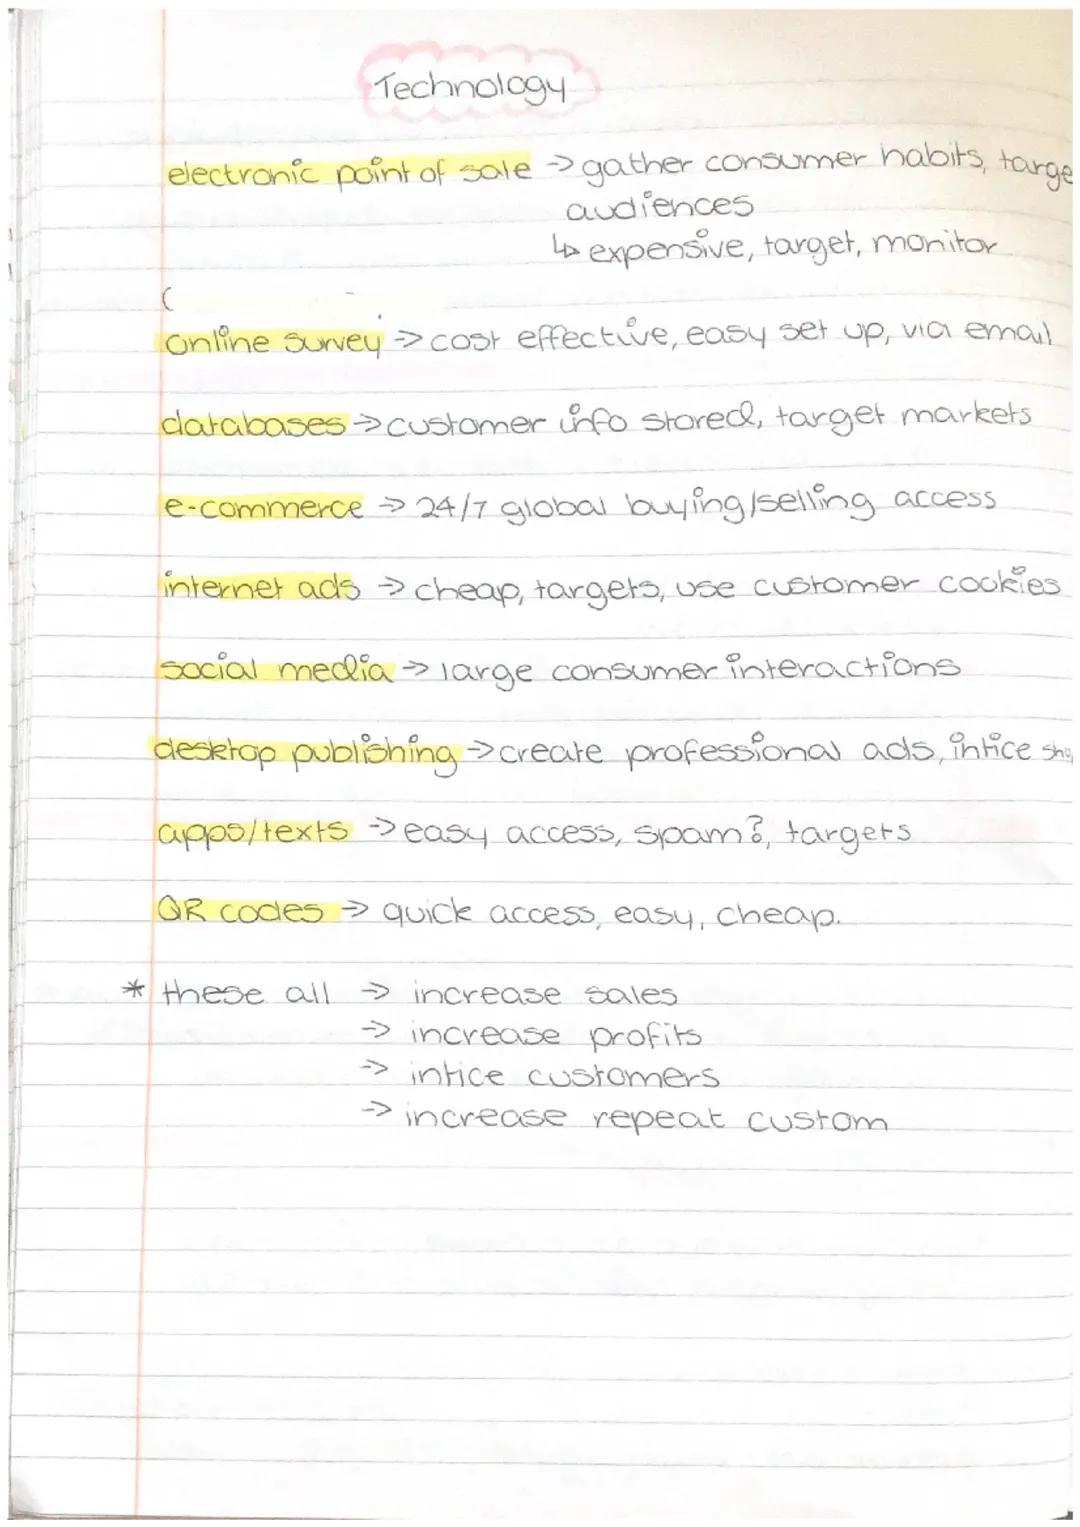 Technology
electronic point of sale -> gather consumer habits, targe
audiences
↳ expensive, target, monitor
(
online survey -> cost effective, easy set up, via email
databases -> customer info stored, target markets
e-commerce -> 24/7 global buying/selling access
internet ads -> cheap, targets, use customer cookies
social media -> large consumer interactions
desktop publishing -> create professional ads, intice
apps/texts -> easy access, spam?, targets
QR codes -> quick access, easy, cheap.
* these all -> increase sales
-> increase profits
-> intice customers
-> increase repeat custom